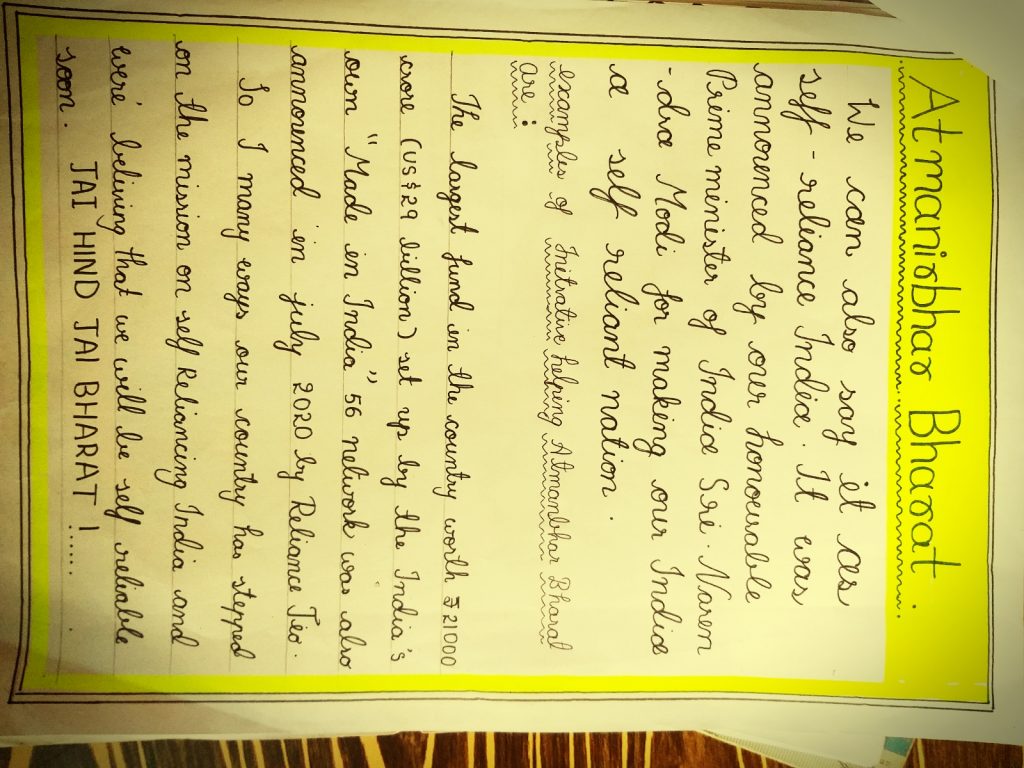 Atmanirbhar Bharat.
We can also say it as
self-reliance India. It was
announced by our honourable
Prime minister of India Sri. Naren
-dra Modi for making our India
a self reliant nation.
examples of Initiative helping Atmanbhar Bharat
are:
The largest fund in the country worth ₹21000
crore (US$29 billion) set up by the India's
own "Made in India" 5G network was also
announced in july 2020 by Reliance Jio.
So I many ways our country has stepped
on the mission on self Reliancing India and
were' beliving that we will be self reliable
soon. JAI HIND JAI BHARAT!......